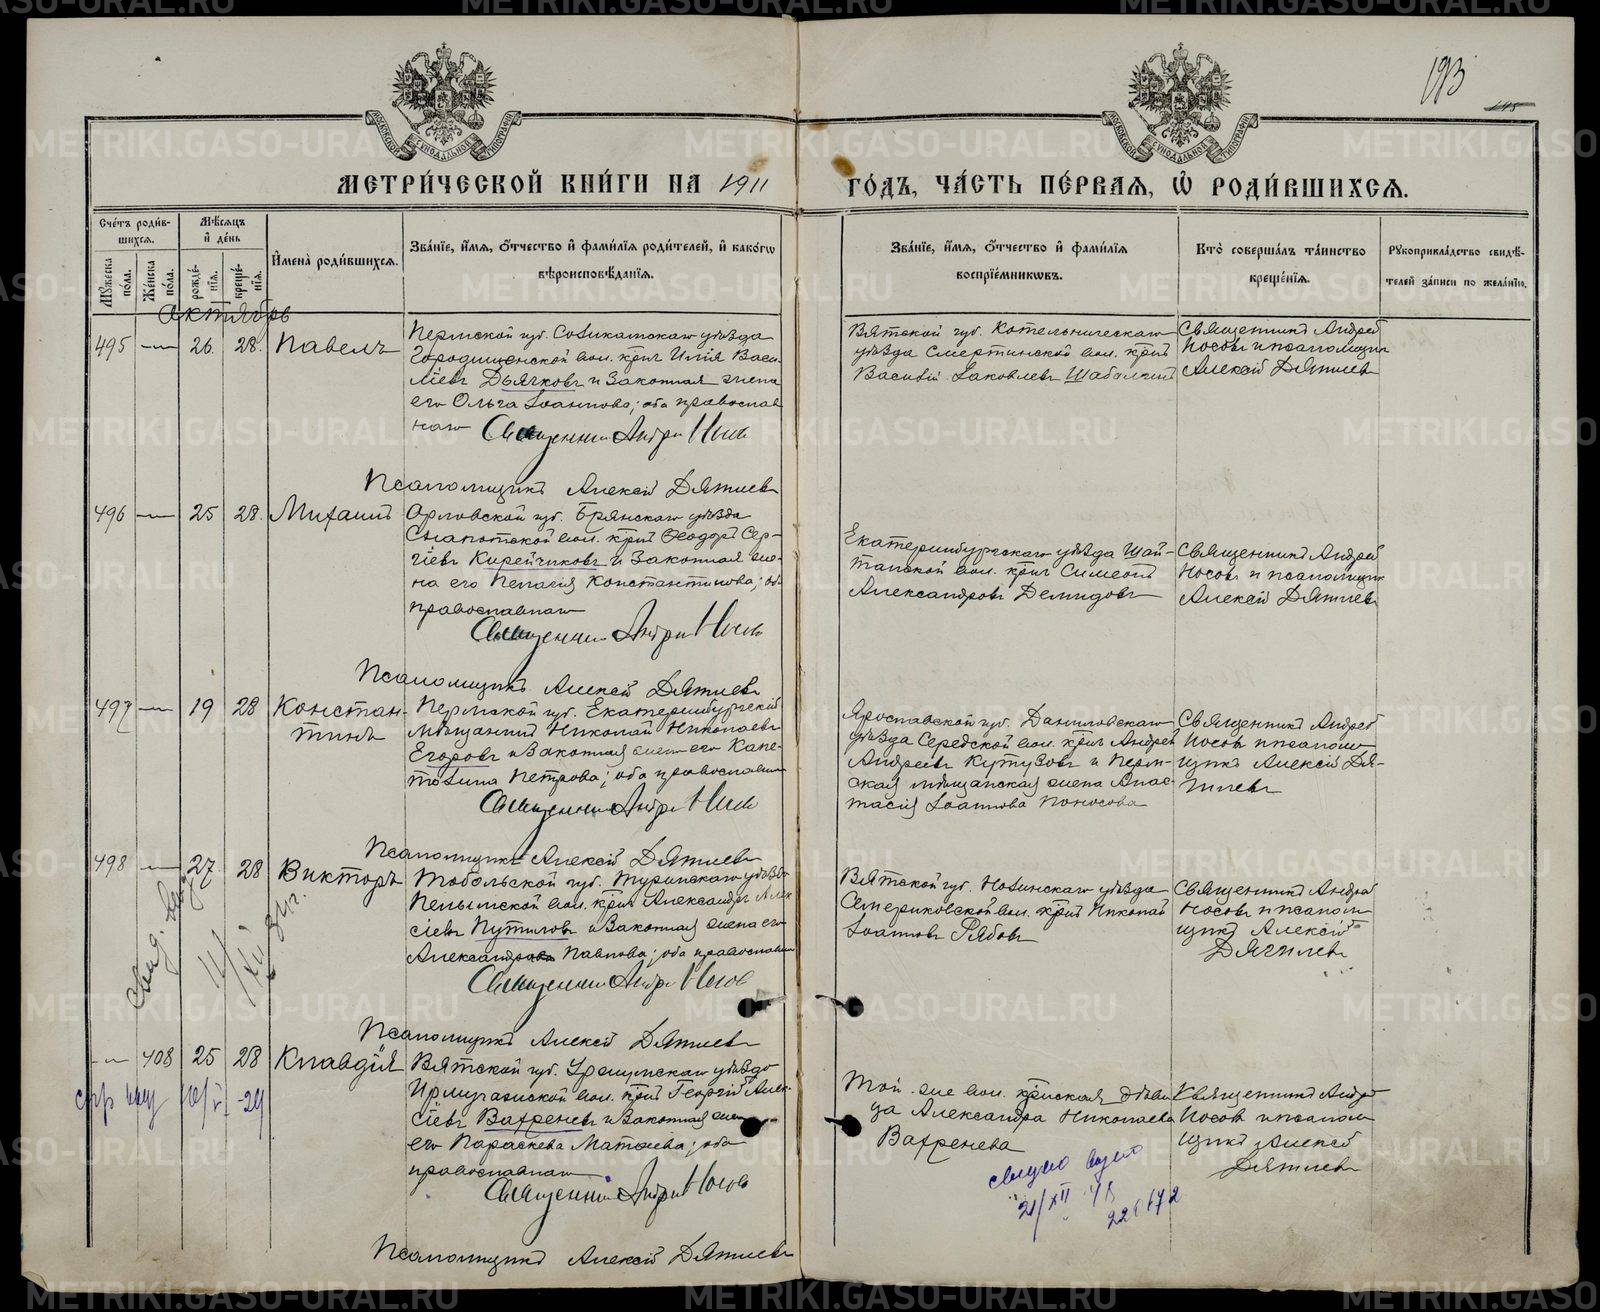 193
145
МЕТРИ́ЧЕСКОЙ КНИ́ГИ НА 1911
ГО́ДЪ, ЧА́СТЬ ПЕ́РВАЯ, Ѡ҆ РОДИ́ВШИХСЯ.
Сче́тъ роди́вшихся.
Му́жеска по́ла.
Же́нска по́ла.
Мѣ́сяцъ и҆ де́нь
рожде́нїя.
креще́нїя.
И҆мена̀ роди́вшихся.
Зва́нїе, и҆́мя, ѻ҆́тчество и҆ фами́лїя роди́телей, и҆ како́гѡ
вѣроисповѣ́данїя.
Зва́нїе, и҆́мя, ѻ҆́тчество и҆ фами́лїя
воспрїе́мникѡвъ.
Кто̀ соверша́лъ та́инство
креще́нїя.
Рꙋкоприкла́дство свидѣ́-
телей за́писи по жела́нїю.
Октябрь
495 — 26 28. Павелъ
Пермской губ. Соликамскаго уѣзда
Городищенской вол. крест. Илія Васи-
ліевъ Дьячковъ и законная жена
его Ольга Іоаннова; оба православ-
наго
Священникъ Андрей Носовъ
Псаломщикъ Алексій Дягилевъ
Вятской губ. Котельническаго
уѣзда Смертинской вол. крест.
Василій Іаковлевъ Шабалинъ
Священникъ Андрей
Носовъ и псаломщик
Алексій Дягилевъ
496 — 25 28. Михаилъ
Орловской губ. Брянскаго уѣзда
вол. крест. Ѳеодоръ Сер-
гіевъ Кирейчиковъ и законная же-
на его Пелагія Константинова; об.
православнаго
Священникъ Андрей Носовъ
Псаломщикъ Алексій Дягилевъ
Екатеринбургскаго уѣзда Шай-
танской вол. крест. Симеонъ
Александровъ Демидовъ
Священникъ Андрей
Носовъ и псаломщик
Алексій Дягилевъ
497 — 19 28 Констан-
тинъ
Пермской губ. Екатеринбургскій
мѣщанинъ Николай Николаевъ
Егоровъ и законная жена его Капи-
толина Петрова; оба православн
Священникъ Андрей Носовъ
Псаломщикъ Алексій Дягилевъ
Ярославской губ. Даниловскаго
уѣзда Середской вол. крест. Андрей
Андреевъ Кутузовъ и Перм-
ская мѣщанская жена Анас-
тасія Іоаннова Поносова
Священникъ Андрей
Носовъ и псалом-
щикъ Алексій Дя-
гилевъ
498 — 27 28 Викторъ
Тобольской губ. Туринскаго уѣзда
Пелымской вол. крест. Александръ Алек-
сіевъ Путиловъ и законная жена его
Александра Павлова; оба православн
Священникъ Андрей Носовъ
Псаломщикъ Алексій Дягилевъ
Вятской губ. Нолинскаго уѣзда
вол. крест. Николай
Іоанновъ Рябовъ
Священникъ Андрей
Носовъ и псалом
щикъ Алексій
Дягилевъ
— 408 25 28 Клавдія
Вятской губ. Уржумскаго уѣзда
вол. крест. Георгій Алек-
сіевъ Вахреневъ и законная жена
его Параскева Матѳіева; оба
православнаго
Священникъ Андрей Носовъ
Псаломщикъ Алексій Дягилевъ
Той же вол. крестьянская дѣви-
ца Александра Николаева
Вахренева
Священникъ Андрей
Носовъ и псалом
щикъ Алексій
Дягилевъ
21/XII
METRIKI.GASO-URAL.RU